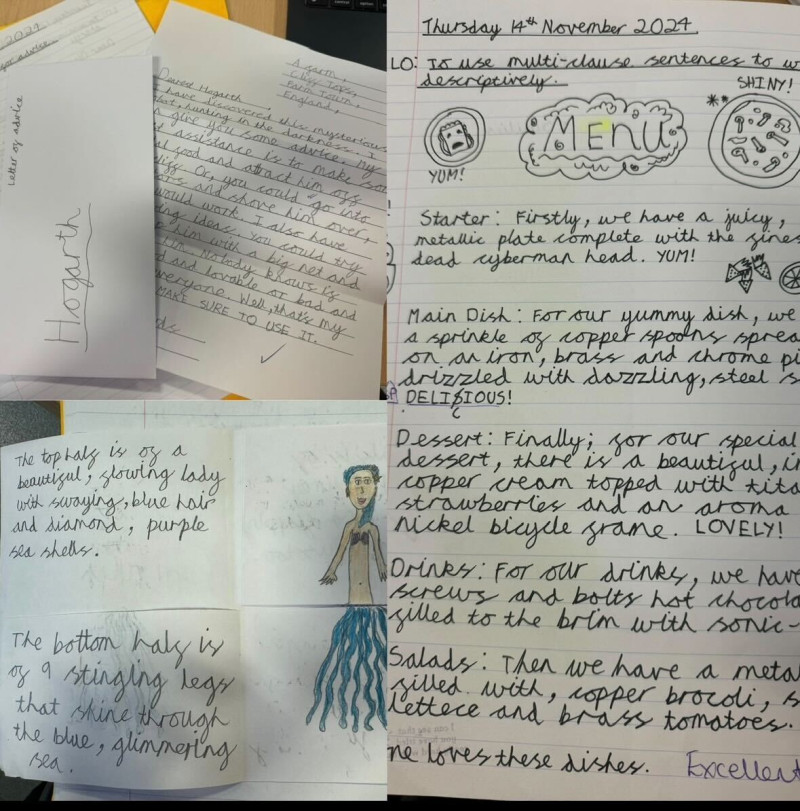 2024
Letter of advice
Hogarth
A Farm,
England,
Dearest Hogarth,
have discovered this mysterious
hunting in the darkness. I
give you some advice. My
assistance is to make some
food and attract him
Or, you could go into
and shove him over,
would work. I also have
ideas. You could try
him with a big net and
Nobody knows is
and lovable or bad and
everyone. Well, that's my
MAKE SURE TO USE IT.
The top half is of a
beautiful, glowing lady
with swaying, blue hair
and diamond, purple
sea shells.
The bottom half is
of 9 stinging legs
that shine through
the blue, glimmering
sea.
Thursday 14th November 2024
LO: To use multi-clause sentences to w
descriptively.
SHINY!
MENU
YUM!
Starter: Firstly, we have a juicy,
metallic plate complete with the fines
dead cyberman head. YUM!
Main Dish: For our yummy dish, we
a sprinkle of copper spoons sprea
on an iron, brass and chrome pi
drizzled with dazzling, steel s
DELICIOUS!
Dessert: Finally; for our special
dessert, there is a beautiful, i
copper cream topped with tita
strawberries and an aroma
nickel bicycle frame. LOVELY!
Drinks: For our drinks, we have
screws and bolts hot chocola
filled to the brim with sonic-
Salads: Then we have a metal
filled with, copper brocoli, s
lettece and brass tomatoes.
ne loves these dishes.
Excellent